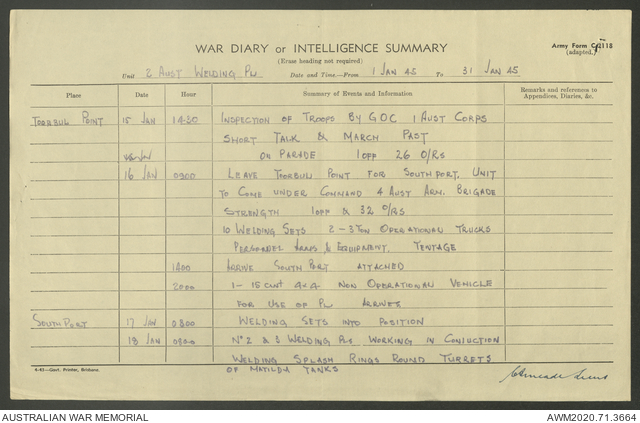 WAR DIARY or INTELLIGENCE SUMMARY
(Erase heading not required)
Army Form C2118
(adapted.)
Unit 2 AUST WELDING PL Date and Time.—From 1 JAN 45 To 31 JAN 45
Place Date Hour Summary of Events and Information Remarks and references to Appendices, Diaries, &c.
TOORBUL POINT 15 JAN 14.30 INSPECTION OF TROOPS BY GOC 1 AUST CORPS
SHORT TALK & MARCH PAST
ON PARADE 1 OFF 26 O/RS
16 JAN 0900 LEAVE TOORBUL POINT FOR SOUTHPORT. UNIT
TO COME UNDER COMMAND 4 AUST ARM. BRIGADE
STRENGTH 1 OFF & 32 O/RS
10 WELDING SETS 2-3 TON OPERATIONAL TRUCKS
PERSONNEL ARMS & EQUIPMENT, TENTAGE
1400 ARRIVE SOUTH PORT ATTACHED
2000 1- 15 CWT 4x4 NON OPERATIONAL VEHICLE
FOR USE OF PL ARRIVES
SOUTHPORT 17 JAN 0800 WELDING SETS INTO POSITION
18 JAN 0800 No 2 & 3 WELDING PLS WORKING IN CONJUCTION
WELDING SPLASH RINGS ROUND TURRETS
OF MATILDA TANKS
4-43—Govt. Printer, Brisbane
AUSTRALIAN WAR MEMORIAL AWM2020.71.3664